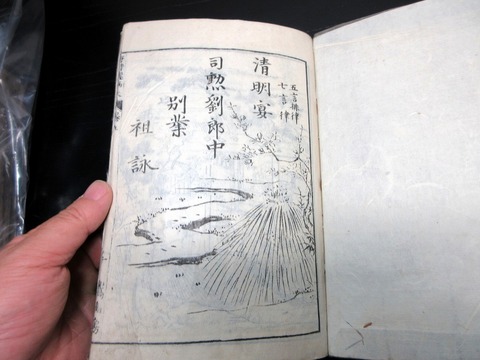 五言排律
七言律
清明宴
司勲劉郎中
別業
祖詠